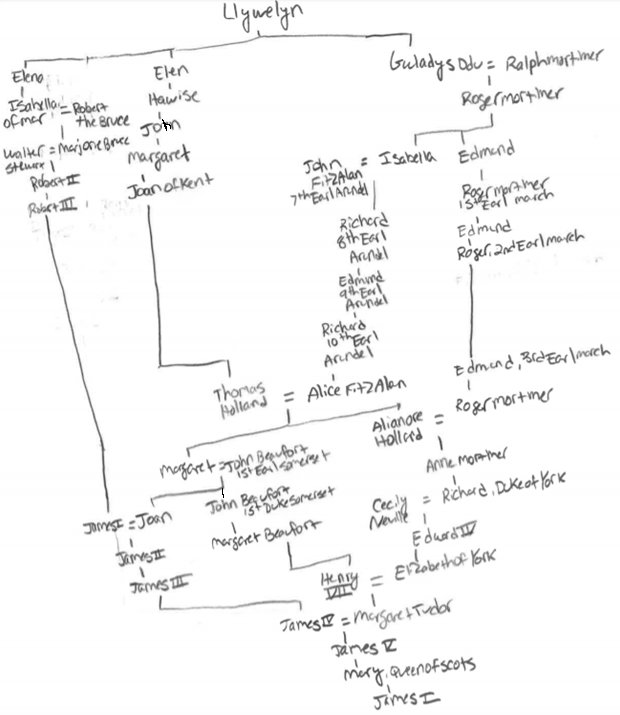 Llywelyn
Elena
Isabella = Robert
of mar the Bruce
Walter = Marjorie Bruce
Stewart
Robert II
Robert III
Elen
Hawise
John
Margaret
Joan of Kent
Guladys Ddu = Ralph mortimer
Roger mortimer
John = Isabella
FitzAlan
7th Earl Arundel
Richard
8th Earl
Arundel
Edmund
9th Earl
Arundel
Richard
10th Earl
Arundel
Edmund
Roger mortimer
1st Earl march
Edmund
Roger, 2nd Earl march
Edmund, 3rd Earl march
Roger mortimer
Thomas = Alice FitzAlan
Holland
Alianore =
Holland
Anne mortimer
Margaret = John Beaufort
1st Earl Somerset
John Beaufort
1st Duke Somerset
Margaret Beaufort
Cecily = Richard, Duke of York
Neville
Edward IV
James I = Joan
James II
James III
Henry = Elizabeth of York
VII
James IV = Margaret Tudor
James V
Mary, Queen of scots
James I